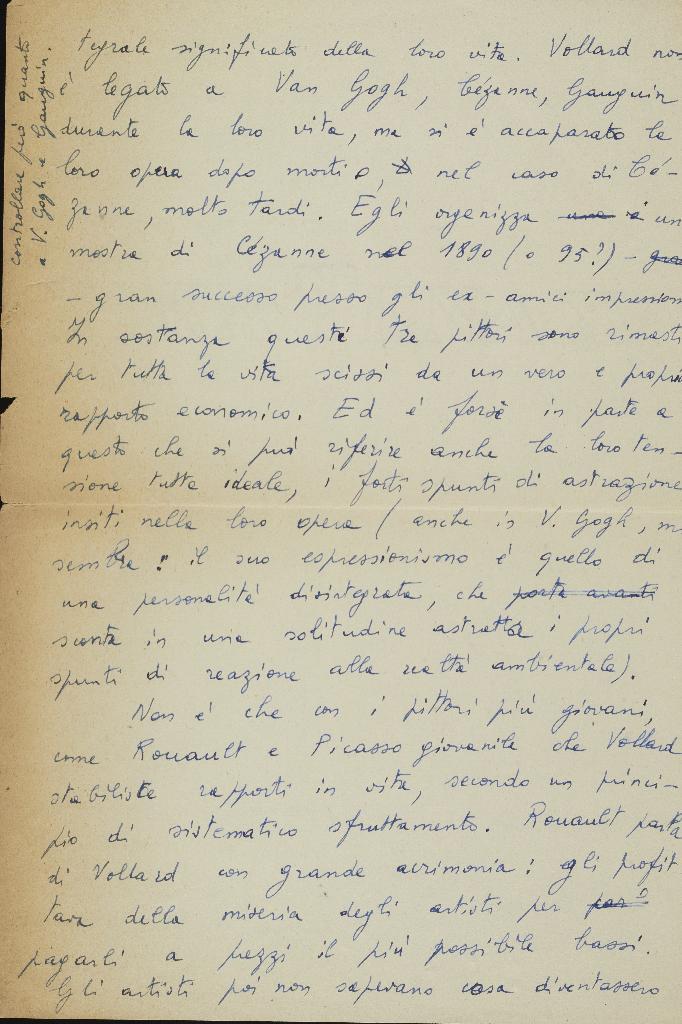 controllare però quanto
a V. Gogh e Gauguin.
tegrale significato della loro vita. Vollard non
è legato a Van Gogh, Cézanne, Gauguin
durante la loro vita, ma si è accaparato la
loro opera dopo morti o, nel caso di Cé-
zanne, molto tardi. Egli organizza una un
mostra di Cézanne nel 1890 (o 95?) - gra
- gran successo presso gli ex-amici impression
In sostanza questi tre pittori sono rimasti
per tutta la vita scissi da un vero e propri
rapporto economico. Ed è forse in parte a
questo che si può riferire anche la loro ten-
sione tutta ideale, i forti spunti di astrazione
insiti nella loro opera (anche in V. Gogh, m
sembra: il suo espressionismo è quello di
una personalità disintegrata, che porta avanti
sconta in una solitudine astratta i propri
spunti di reazione alla realtà ambientale).
Non è che con i pittori più giovani,
come Rouault e Picasso giovanile che Vollard
stabilisce rapporti in vita, secondo un princi-
pio di sistematico sfruttamento. Rouault parla
di Vollard con grande acrimonia: egli profit
tava della miseria degli artisti per
pagarli a prezzi il più possibile bassi.
Gli artisti poi non sapevano cosa diventassero